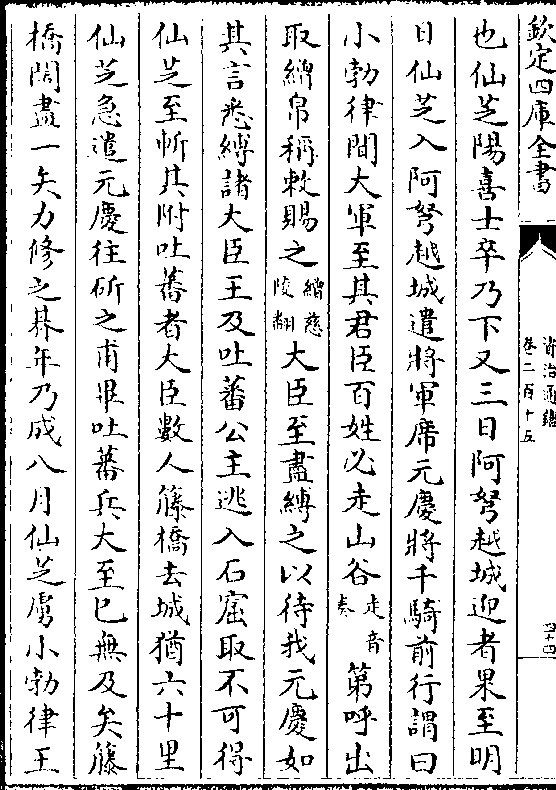 欽定四庫全書
資治通鑑
卷二百十五
四十四
也仙芝陽喜士卒乃下又三日阿弩越城迎者果至明
日仙芝入阿弩越城遣將軍席元慶將千騎前行謂曰
小勃律聞大軍至其君臣百姓必走山谷走音奏第呼出
取繒帛稱敕賜之繒慈陵翻大臣至盡縛之以待我元慶如
其言悉縛諸大臣王及吐蕃公主逃入石窟取不可得
仙芝至斬其附吐蕃者大臣數人籐橋去城猶六十里
仙芝急遣元慶往斫之甫畢吐蕃兵大至已無及矣籐
橋闊盡一矢力修之朞年乃成八月仙芝虜小勃律王